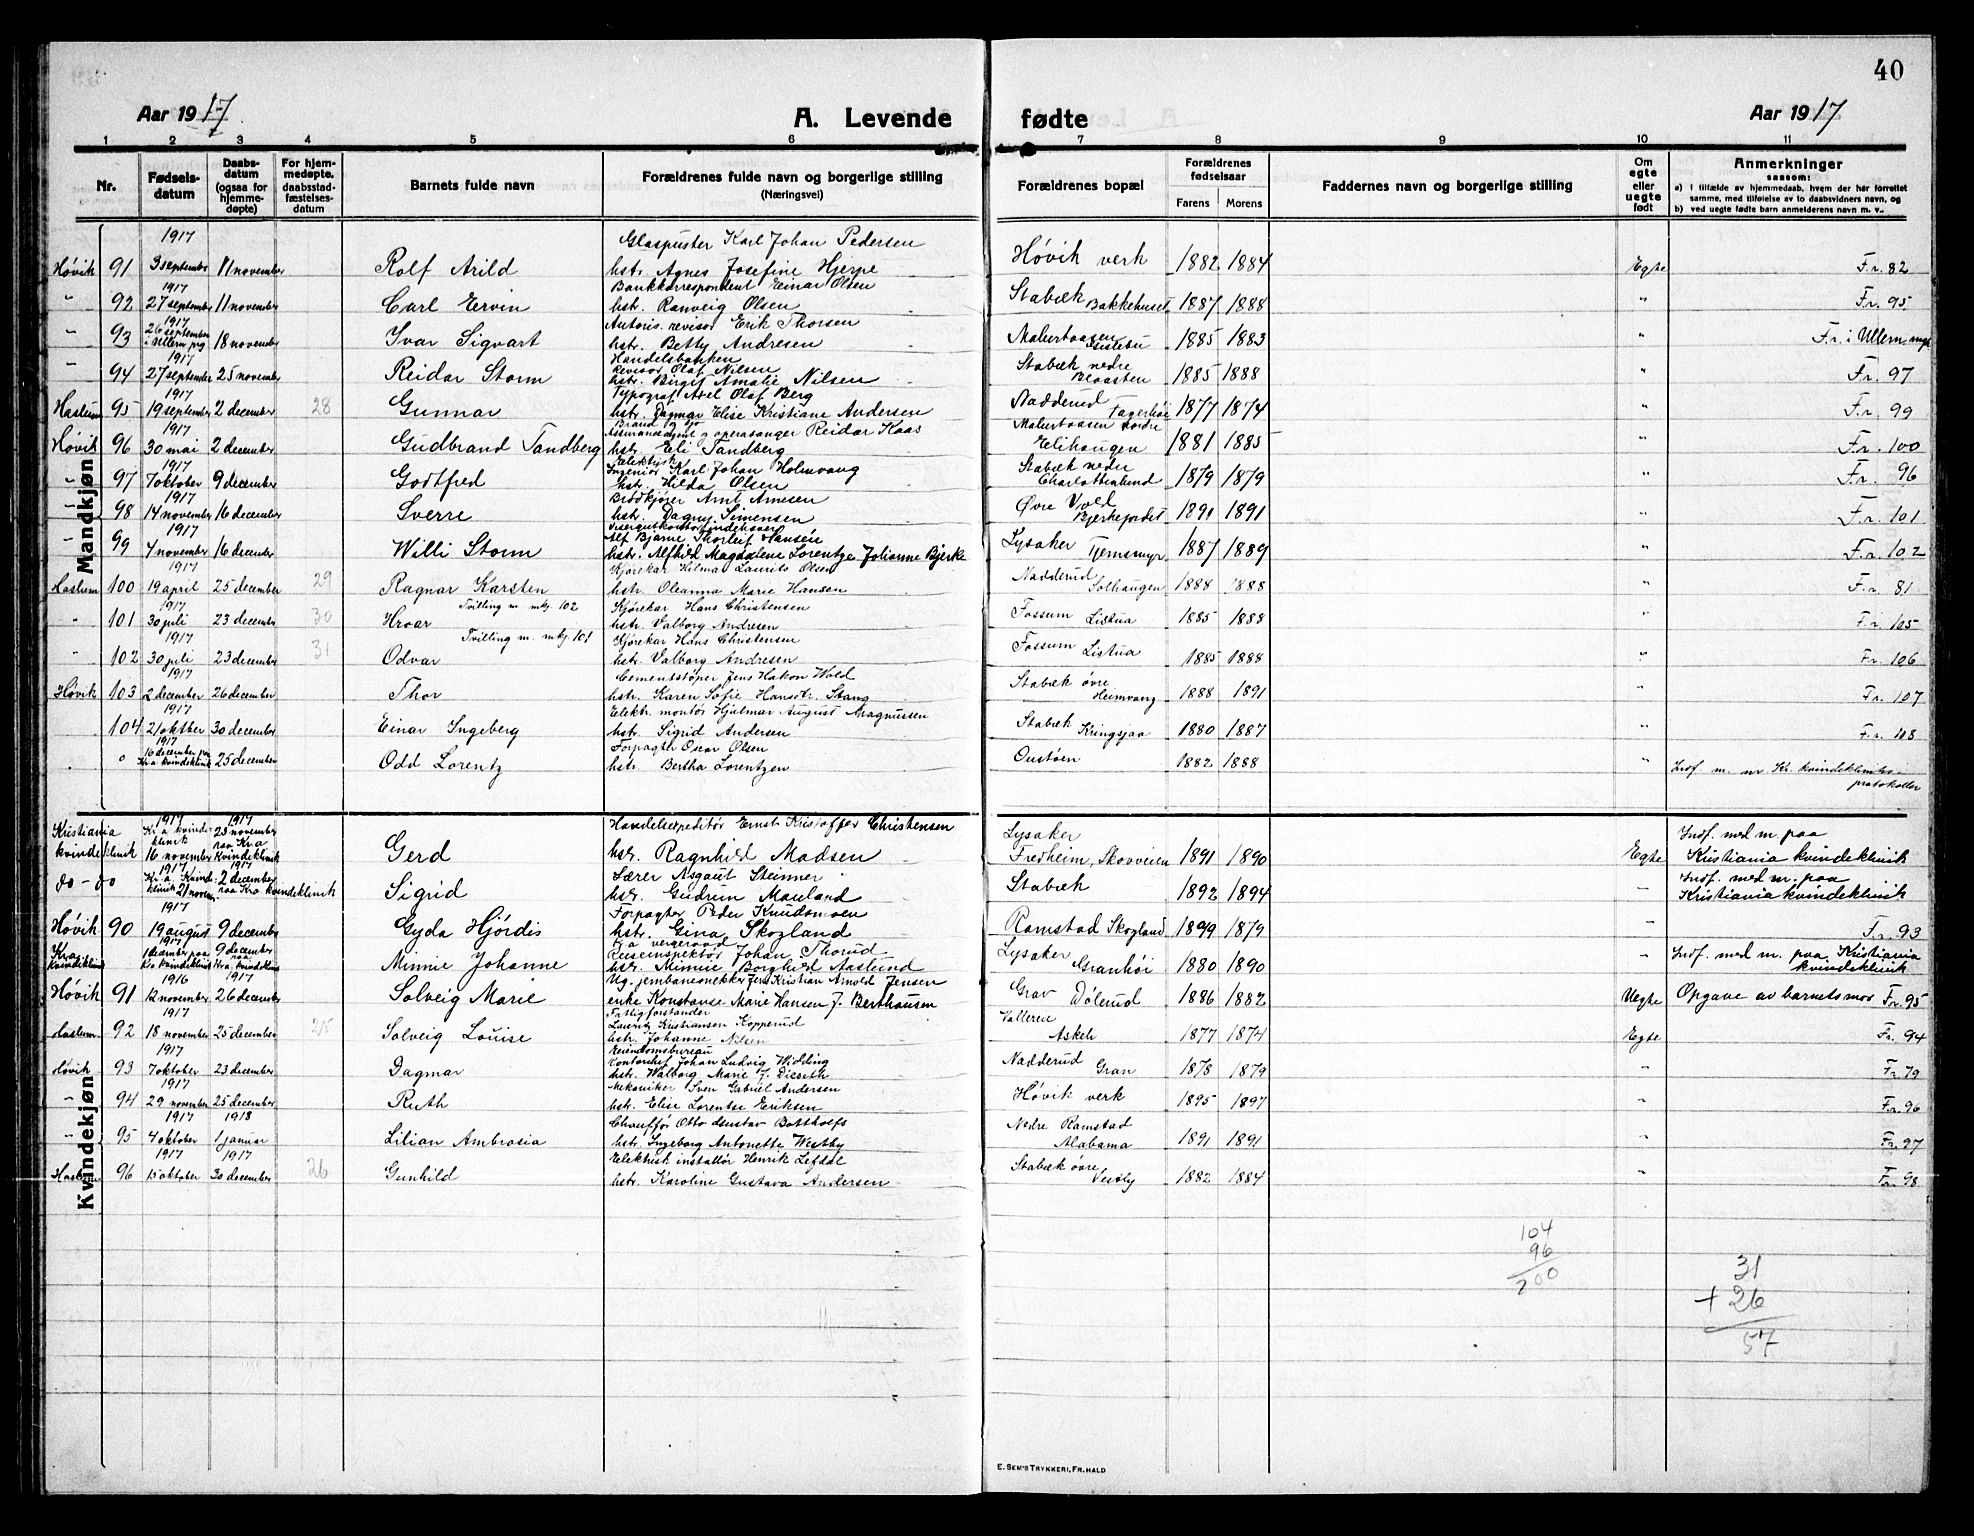 40
Aar 1917. A. Levende fødte Aar 1917
1 2 3 4 5 6 7 8 9 10 11
Nr. Fødselsdatum Daabsdatum (ogsaa for hjemmedøpte) For hjemmedøpte, daabsstadfæstelsesdatum Barnets fulde navn Forældrenes fulde navn og borgerlige stilling (Næringsvei) Forældrenes bopæl Forældrenes fødselsaar Farens Morens Faddernes navn og borgerlige stilling Om egte eller uegte født Anmerkninger saasom: a) i tilfælde av hjemmedaab, hvem der hør forrettet samme, med tilføielse av to daabsvidners navn, og b) ved uegte fødte barn anmelderens navn m. v.
Mandkjøn
1917 Glaspuster Karl Johan Pedersen
Høvik 91 3 september 11 november Rolf Arild hstr. Agnes Josefine Hjerpe Høvik verk 1882 1884 Egte F.r. 82
1917 Bankkorrespondent Einar Olsen
" 92 27 september 11 november Carl Ervin hstr. Ranveig Olsen Stabæk Bakkehuset 1887 1888 " F.r. 95
1917 Autoris. revisor Erik Thorsen
" 93 26 september i Ullern prg 18 november Ivar Sigvart hstr. Betty Andresen 1885 1883 " F.r. i Ullern
1917 Handelsbanken revisor Olaf Nilsen
" 94 27 september 25 november Reidar Storm hstr. Birgit Amalie Nilsen Stabæk nedre Blaasten 1885 1888 " F.r. 97
1917 Typograf Axel Olaf Berg
Haslum 95 19 september 2 december 28 Gunnar hstr. Dagmar Elise Kristiane Andersen Nadderud Fagerhøi 1877 1874 " F.r. 99
1917 operasanger Reidar Kaas
Høvik 96 30 mai 2 december Gudbrand Tandberg hstr. Eli Tandberg Elihaugen 1881 1885 " F.r. 100
1917 Elektrisk Ingeniør Karl Johan Holmvang
" 97 7 oktober 9 december Godtfred hstr. Hilda Olsen Stabæk nedre Charlottenlund 1879 1879 " F.r. 96
1917 Brødkjører Arnt Arnesen
" 98 14 november 16 december Sverre hstr. Dagny Simensen Øvre Vold Bjerkejordet 1891 1891 " F.r. 101
1917 Alf Bjarne Thorleif Hansen
" 99 4 november 16 december Willi Storm hstr. Alfhild Magdalene Lorentze Johanne Bjerke Lysaker Tjernsmyr 1887 1889 " F.r. 102
1917 Kjørekar Hilmar Laurits Olsen
Haslum 100 19 april 25 december 29 Ragnar Karsten hstr. Oleanna Marie Hansen Nadderud Solhaugen 1888 1888 " F.r. 81
1917 Tvilling m. mkj. 102 Kjørekar Hans Christensen
" 101 30 juli 23 december 30 Hroar hstr. Valborg Andresen Fossum Listua 1885 1888 " F.r. 105
1917 Tvilling m. mkj. 101 Kjørekar Hans Christensen
" 102 30 juli 23 december 31 Odvar hstr. Valborg Andresen Fossum Listua 1885 1888 " F.r. 106
1917 Cementstøper Jens Hakon Wold
Høvik 103 2 december 26 december Thor hstr. Karen Sofie Hansdtr. Stang Stabæk øvre Heimvang 1888 1891 " F.r. 107
1917 Elektr. montør Hjalmar August Magnussen
104 21 oktober 30 december Einar Ingeberg hstr. Sigrid Andersen Stabæk Kringsjaa 1880 1887 " F.r. 108
1917 Forpagter Oscar Olsen
" 16 december paa Kr.a kvindeklinik 25 december Odd Lorentz hstr. Bertha Lorentzen Oustøen 1882 1888 " Indf. m. nr. Kr. kvindekliniks protokoller
Kvindekjøn
1917 1917 Handelsexpeditør Ernst Kristoffer Christensen
Kristiania kvindeklinik Kr.a kvindeklinik 16 november 23 november paa Kr.a Kvindeklinik Gerd hstr. Ragnhild Madsen Lysaker Fredheim, Skovveien 1891 1890 Egte Indf. med nr. paa Kristiania kvindeklinik
1917 1917 Lærer Asgaut Steinnes
do - do Kr.a. Kvindeklinik 21 novem. 2 december paa Kr.a kvindeklinik Sigrid hstr. Gudrun Mauland Stabæk 1892 1894 " Indf. med nr. paa Kristiania kvindeklinik
1917 Forpagter Peder Knudsmoen
Høvik 90 19 august 9 december Gyda Hjördis hstr. Gina Skogland Ramstad Skogland 1899 1879 " F.r. 93
1917 Kr.a vergeraad Reiseinspektør Johan Thorud
Kr.a kvindeklinik 1 december paa Kr.a kvindeklinik 9 december paa Kr.a. kvindeklinik Minnie Johanne hstr. Minnie Borghild Aaslund Lysaker Granhøi 1880 1890 " Indf. med nr. paa Kristiania kvindeklinik
1916 1917 Ug. jernbanesnekker Jens Kristian Arnold Jensen
Høvik 91 12 november 26 december Solveig Marie enke Konstanse Marie Hansen f. Berthausen Grav Dølerud 1886 1882 Uegte Opgave av barnets mor F.r. 95
1917 Fattigforstander Laurits Kristiansen Kopperud
Haslum 92 18 november 25 december 25 Solveig Louise hstr. Johanne Nilsen Valleren Askeh 1877 1874 Egte F.r. 94
1917 Eiendomsbureau Kontorchef Johan Ludvig Widding
Høvik 93 7 oktober 23 december Dagmar hstr. Walborg Marie f. Dieseth Nadderud Gran 1878 1879 " F.r. 79
1917 Mekaniker Sven Gabriel Andersen
" 94 29 november 25 december Ruth hstr. Elise Lorentse Eriksen Høvik verk 1895 1897 " F.r. 96
1917 1918 Chauffør Otto Gustav Botthofs
" 95 4 oktober 1 januar Lilian Ambrosia hstr. Ingeborg Antonette Westby Nedre Ramstad Alabama 1891 1891 " F.r. 97
1917 1917 Elektrisk installør Henrik Lefdal
Haslum 96 15 oktober 30 december 26 Gunhild hstr. Karoline Gustava Andersen Stabæk øvre Vestby 1882 1884 " F.r. 98
104
96
200
31
+ 26
57
E. SEM'S TRYKKERI, FR.HALD